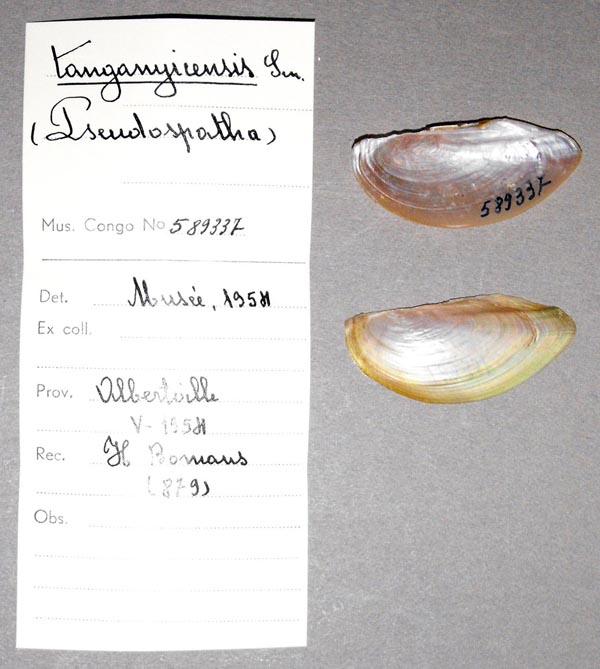 tanganyicensis Sm.
(Pseudospatha)
Mus. Congo No 589337
Det. Musée, 1954
Ex coll.
Prov. Albertville
V-1954
Rec. H Bomans
(879)
Obs.
589337